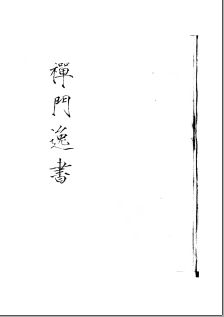 禪門逸書